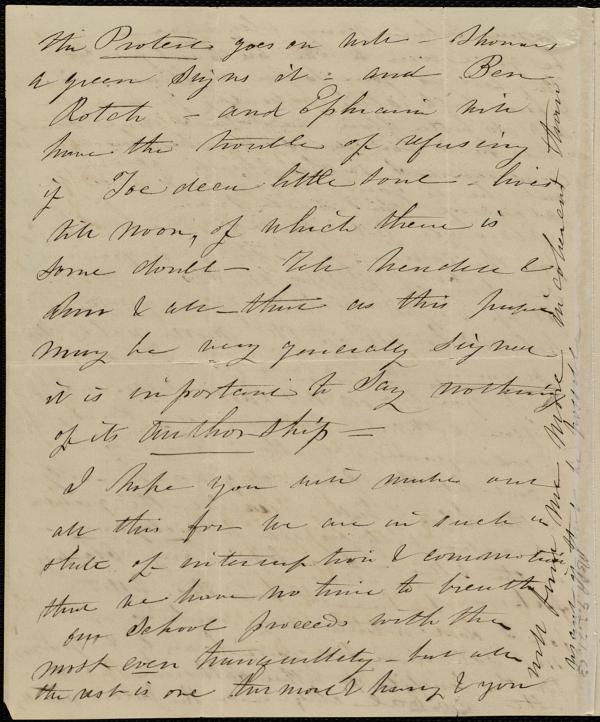 the Protest goes on well – Thomas
a green signs it – and Ben
Rotch – and Ephraim will
have the trouble of refusing
if Joe dear little soul – lives
till noon, of which there is
some doubt – Tell &
Ann & all – that as this paper
may be very generally signed
it is important to say nothing
of its authorship –
I hope you will make out
all this for we are in such a
state of interruption & commotion
that we have no time to breathe
our School proceeds with the
most even tranquillity – but all
the rest is one turmoil & hurry & you
will find me more incoherent than